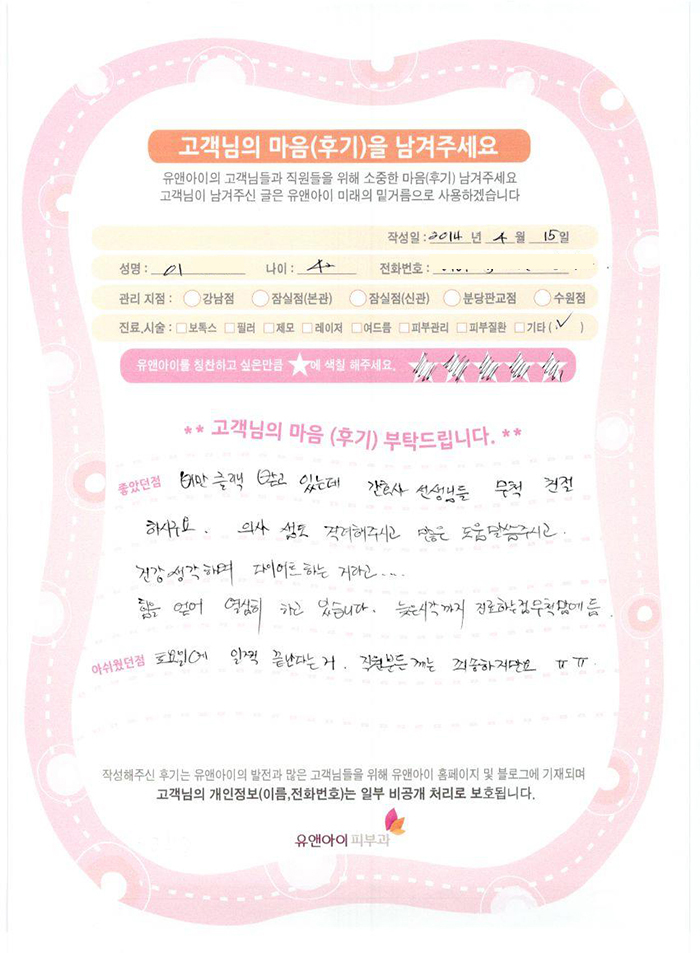 고객님의 마음(후기)을 남겨주세요
유앤아이의 고객님들과 직원들을 위해 소중한 마음(후기) 남겨주세요
고객님이 남겨주신 글은 유앤아이 미래의 밑거름으로 사용하겠습니다
작성일 : 2014 년 4 월 15 일
성명 : 이 나이 : 전화번호 :
관리 지점 : 강남점 잠실점(본관) 잠실점(신관) 분당판교점 수원점
진료.시술 : 보톡스 필러 제모 레이저 여드름 피부관리 피부질환 기타 ( ✓ )
유앤아이를 칭찬하고 싶은만큼 ★에 색칠 해주세요.
** 고객님의 마음 (후기) 부탁드립니다. **
좋았던점 비만 클리닉 받고 있는데 간호사 선생님들 무척 친절
하시구요. 의사 샘도 격려해주시고 많은 도움말씀주시고.
건강 생각하며 다이어트하는 거라고....
힘을 얻어 열심히 하고 있습니다. 늦은시각까지 진료하는점 무척 맘에 듬.
아쉬웠던점 토요일에 일찍 끝난다는거. 직원분들께는 죄송하지만요 ㅠㅠ.
작성해주신 후기는 유앤아이의 발전과 많은 고객님들을 위해 유앤아이 홈페이지 및 블로그에 기재되며
고객님의 개인정보(이름,전화번호)는 일부 비공개 처리로 보호됩니다.
유앤아이 피부과